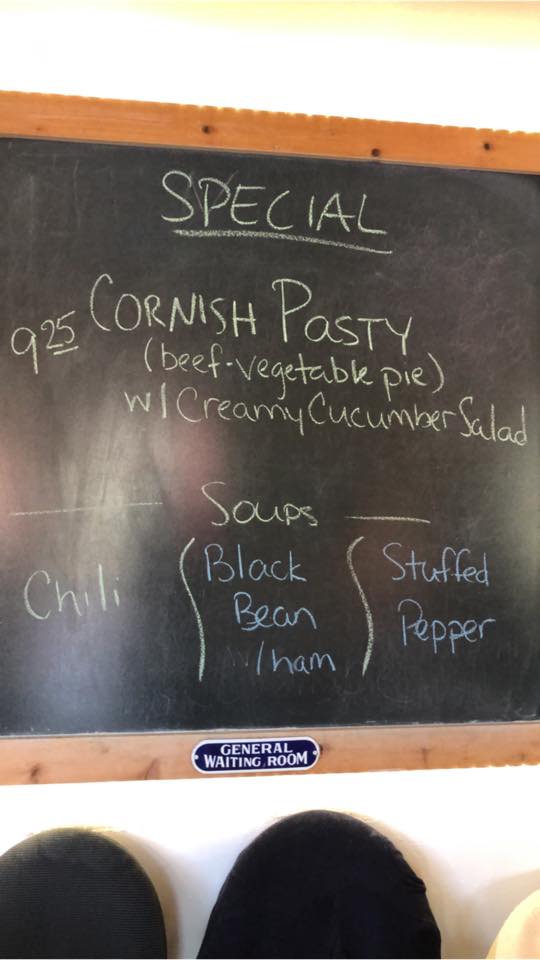 SPECIAL
9 25 CORNISH PASTY
(beef-vegetable pie)
w/ Creamy Cucumber Salad
Soups
Chili
Black
Bean
/ham
Stuffed
Pepper
GENERAL
WAITING ROOM